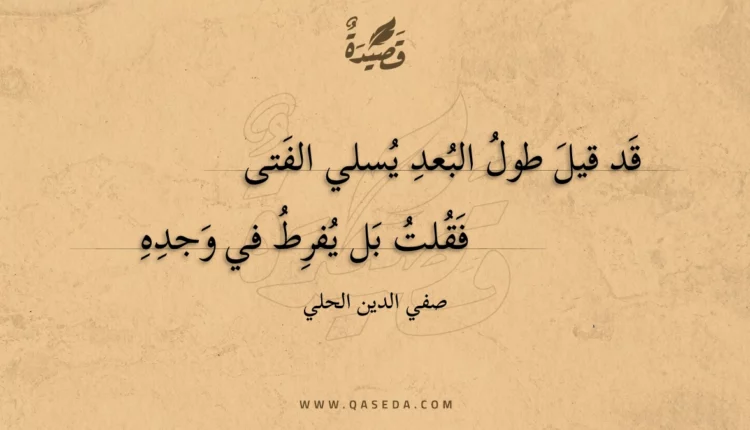 قَصِيدَةٌ
قَد قيلَ طولُ البُعدِ يُسلي الفَتى
فَقُلتُ بَل يُفرِطُ في وَجدِهِ
صفي الدين الحلي
WWW.QASEDA.COM